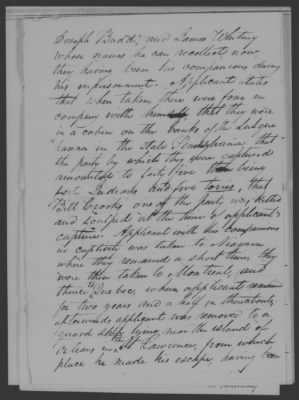 Joseph Budd, and James Whitney
whose names he can recollect now,
they having been his companions during
his imprisonment. Applicant states
that when taken there were four in
company with himself that they were
in a cabin on the banks of the Susque
hanna in the State Pennsylvania, that
the party by which they were captured
amounted to forty five being
forty Indians and five tories, that
Bill Crooks one of the party was killed
and Scalped at the time of applicant's
capture. Applicant with his companions
in captivity was taken to Niagara
where they remained a short time, they
were then taken to Montreal, and
thence to Quebec, where applicant remained
for two years and a day or thereabouts,
afterwards applicant was removed to a
guard ship lying near the island of
Orleans in the St Lawrence, from which
place he made his escape, having been